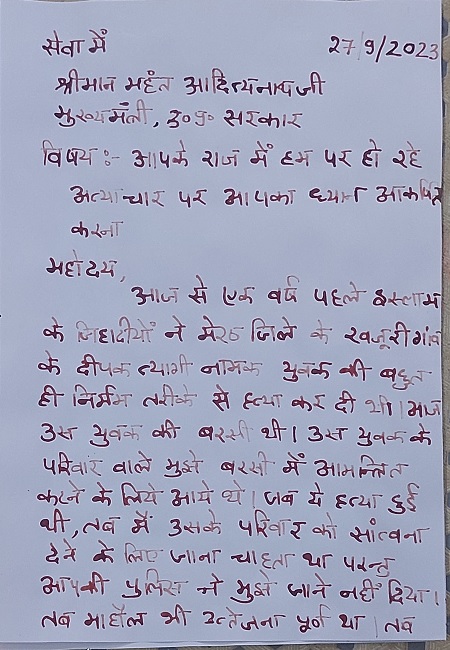 सेवा में 27/9/2023
श्रीमान महंत आदित्यनाथ जी
मुख्यमंत्री, उ०प्र० सरकार
विषय :- आपके राज में हम पर हो रहे
अत्याचार पर आपका ध्यान आकर्षित
करना
महोदय,
आज से एक वर्ष पहले इस्लाम
के जिहादीयों ने मेरठ जिले के खजूरी गांव
के दीपक त्यागी नामक युवक की बहुत
ही निर्मम तरीके से हत्या कर दी थी। आज
उस युवक की बरसी थी। उस युवक के
परिवार वाले मुझे बरसी में आमन्त्रित
करने के लिये आये थे। जब ये हत्या हुई
थी, तब मैं उसके परिवार को सांत्वना
देने के लिए जाना चाहता था परन्तु
आपकी पुलिस ने मुझे जाने नहीं दिया।
तब माहौल भी उत्तेजना पूर्ण था। तब